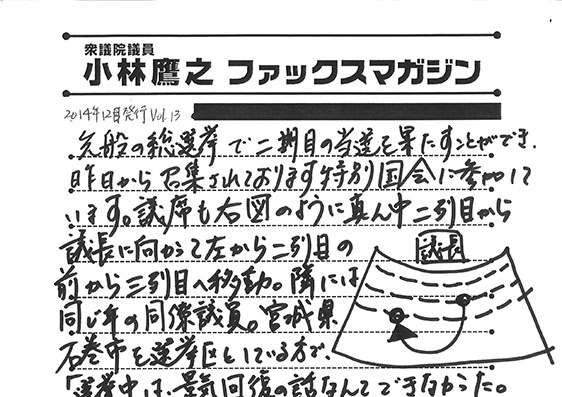 衆議院議員
小林鷹之 ファックスマガジン
2014年12月発行 Vol.13
先般の総選挙で二期目の当選を果たすことができ、
昨日から召集されております特別国会に参加して
います。議席も右図のように真ん中二列目から
議長に向かって左から二列目の
議長
前から三列目へ移動。隣には
同じ年の同僚議員。宮城県
石巻市を選挙区としている方で、
「選挙中は、景気回復の話なんてできなかった。